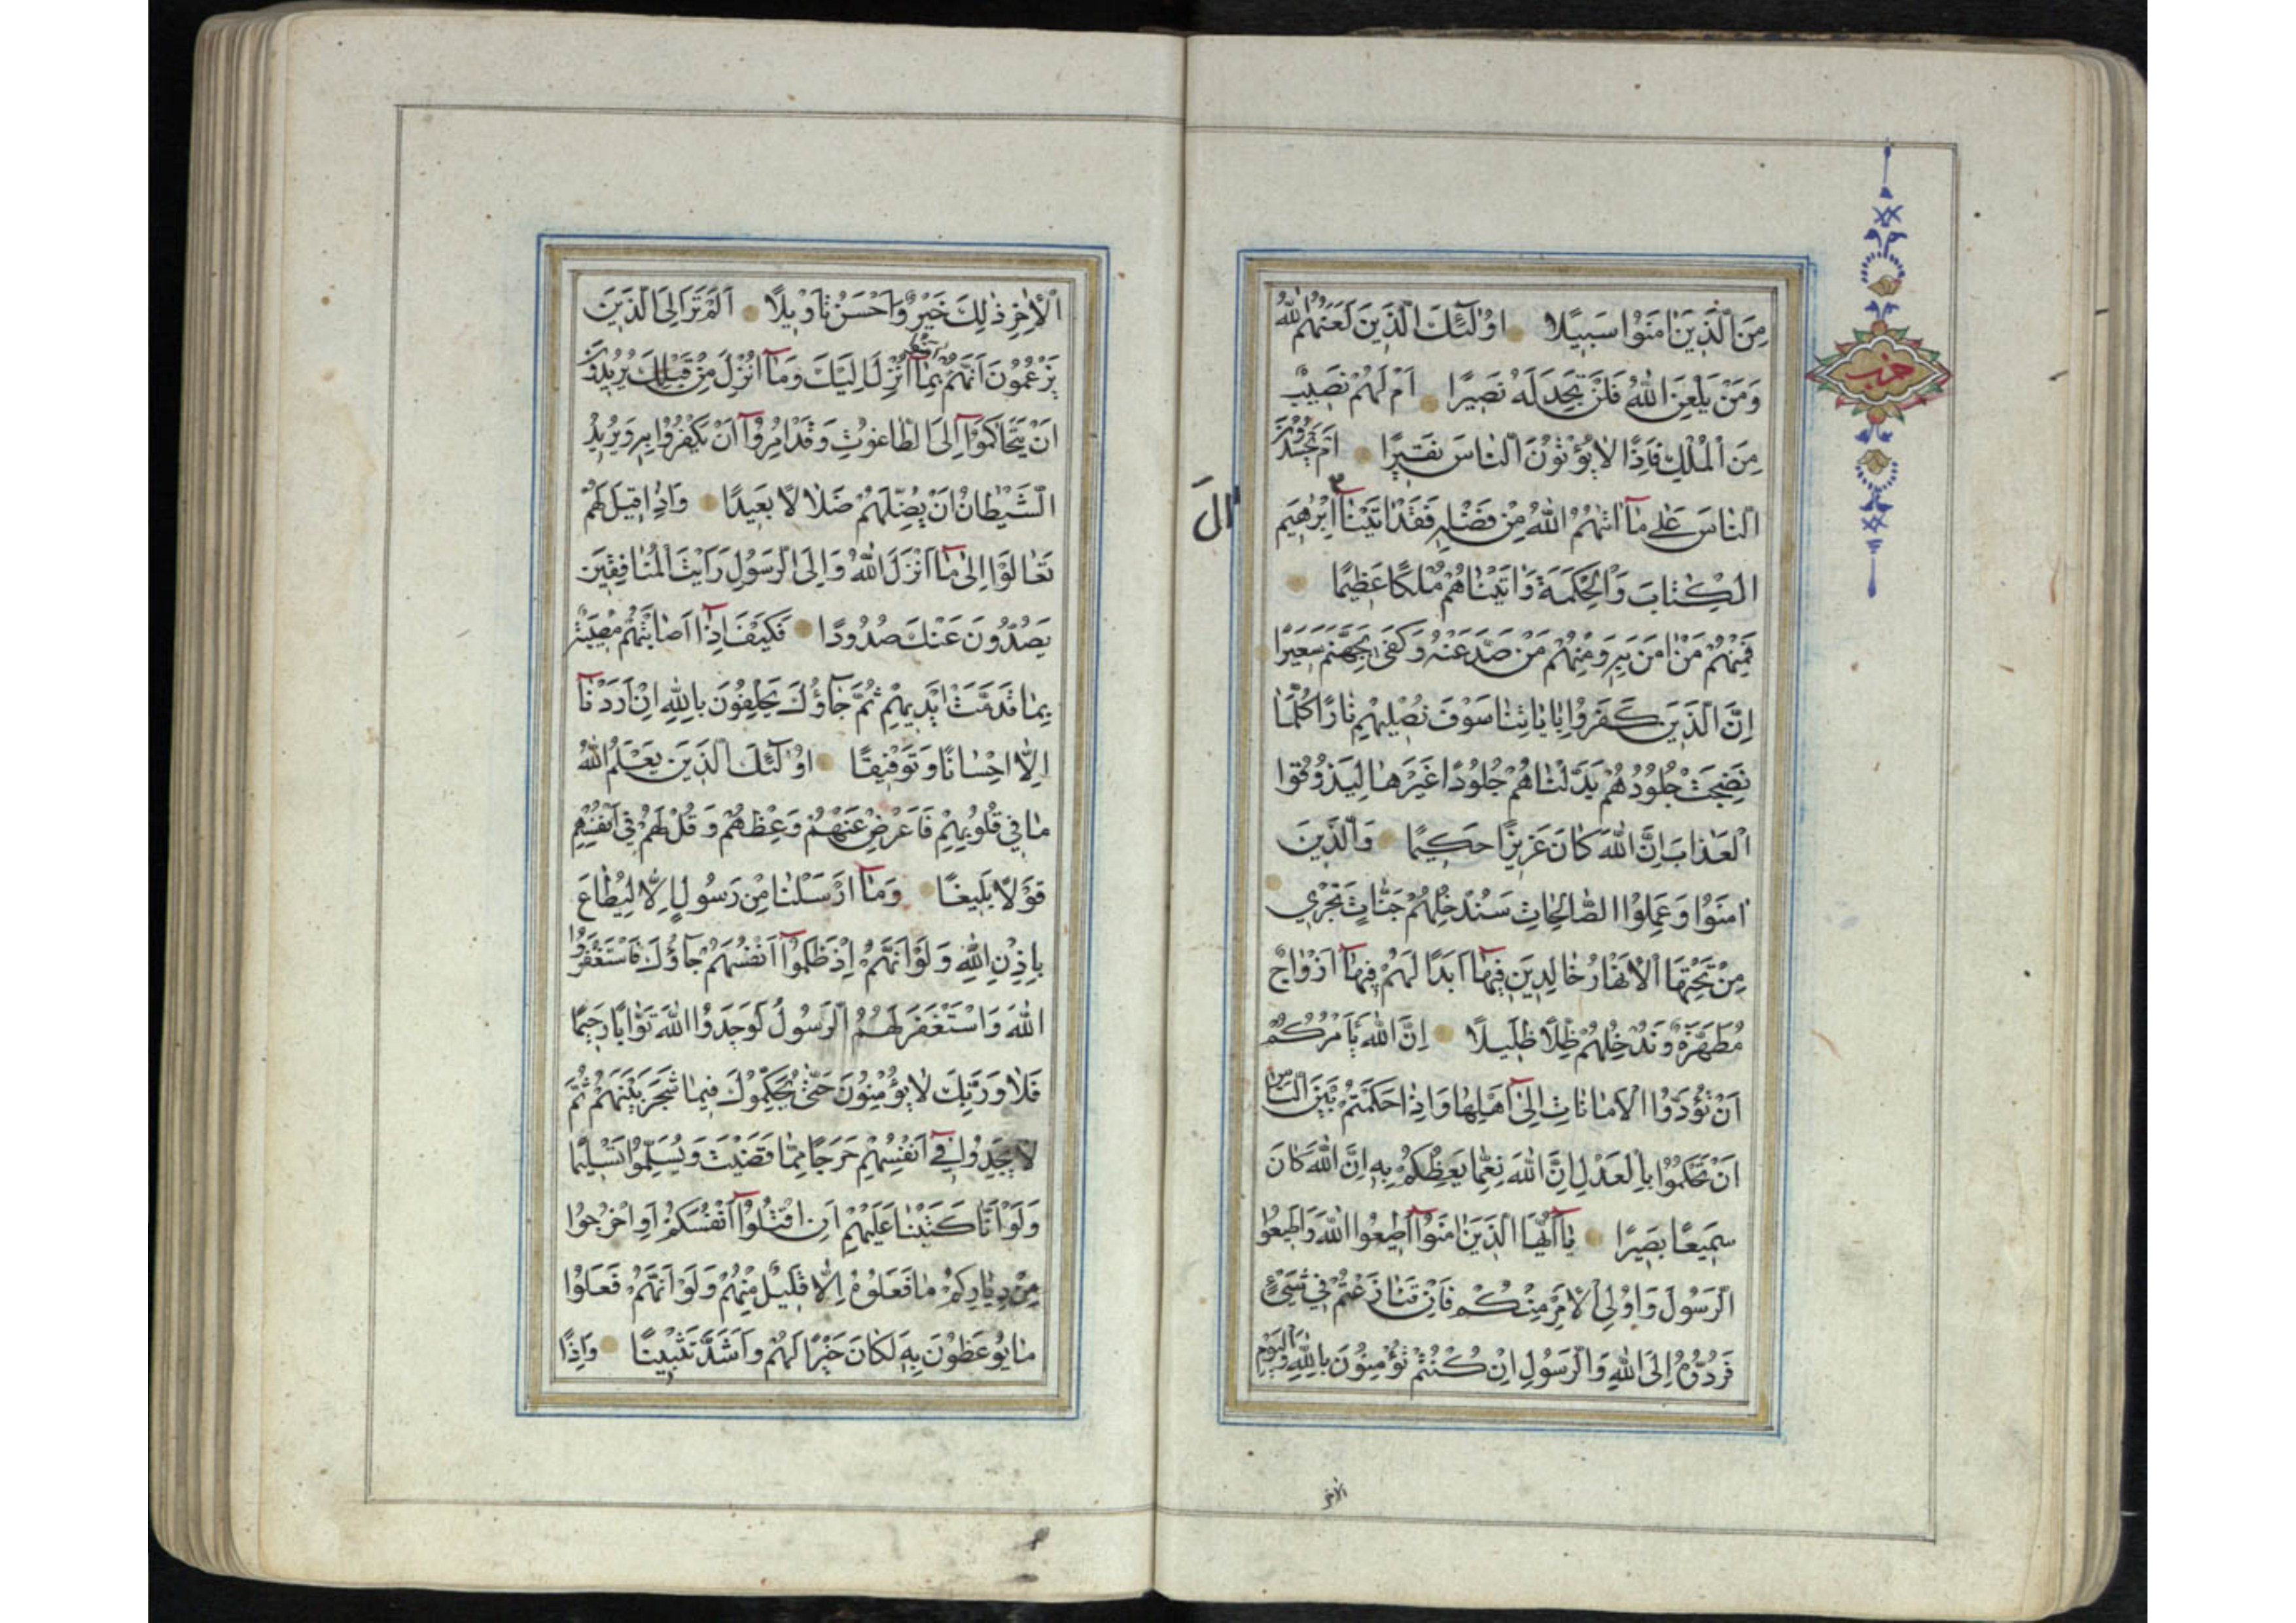 مِنَ الَّذِينَ اٰمَنُوا سَبِيلًا اُولٰٓئِكَ الَّذِينَ لَعَنَهُمُ اللّٰهُ
وَمَنْ يَلْعَنِ اللّٰهُ فَلَنْ تَجِدَ لَهُ نَصِيرًا اَمْ لَهُمْ نَصِيبٌ
مِنَ الْمُلْكِ فَاِذًا لَا يُؤْتُونَ النَّاسَ نَقِيرًا اَمْ يَحْسُدُونَ
النَّاسَ عَلٰى مَآ اٰتٰيهُمُ اللّٰهُ مِنْ فَضْلِهِ فَقَدْ اٰتَيْنَآ اِبْرٰهِيمَ
اٰلَ
الْكِتَابَ وَالْحِكْمَةَ وَاٰتَيْنَاهُمْ مُلْكًا عَظِيمًا
فَمِنْهُمْ مَنْ اٰمَنَ بِهِ وَمِنْهُمْ مَنْ صَدَّ عَنْهُ وَكَفٰى بِجَهَنَّمَ سَعِيرًا
اِنَّ الَّذِينَ كَفَرُوا بِاٰيَاتِنَا سَوْفَ نُصْلِيهِمْ نَارًا كُلَّمَا
نَضِجَتْ جُلُودُهُمْ بَدَّلْنَاهُمْ جُلُودًا غَيْرَهَا لِيَذُوقُوا
الْعَذَابَ اِنَّ اللّٰهَ كَانَ عَزِيزًا حَكِيمًا وَالَّذِينَ
اٰمَنُوا وَعَمِلُوا الصَّالِحَاتِ سَنُدْخِلُهُمْ جَنَّاتٍ تَجْرِي
مِنْ تَحْتِهَا الْاَنْهَارُ خَالِدِينَ فِيهَآ اَبَدًا لَهُمْ فِيهَآ اَزْوَاجٌ
مُطَهَّرَةٌ وَنُدْخِلُهُمْ ظِلًّا ظَلِيلًا اِنَّ اللّٰهَ يَأْمُرُكُمْ
اَنْ تُؤَدُّوا الْاَمَانَاتِ اِلٰٓى اَهْلِهَا وَاِذَا حَكَمْتُمْ بَيْنَ النَّاسِ
اَنْ تَحْكُمُوا بِالْعَدْلِ اِنَّ اللّٰهَ نِعِمَّا يَعِظُكُمْ بِهِ اِنَّ اللّٰهَ كَانَ
سَمِيعًا بَصِيرًا يَآ اَيُّهَا الَّذِينَ اٰمَنُوٓا اَطِيعُوا اللّٰهَ وَاَطِيعُوا
الرَّسُولَ وَاُولِي الْاَمْرِ مِنْكُمْ فَاِنْ تَنَازَعْتُمْ فِي شَيْءٍ
فَرُدُّوهُ اِلَى اللّٰهِ وَالرَّسُولِ اِنْ كُنْتُمْ تُؤْمِنُونَ بِاللّٰهِ وَالْيَوْمِ
الاخر
حزب
الْاٰخِرِ ذٰلِكَ خَيْرٌ وَاَحْسَنُ تَاْوِيلًا اَلَمْ تَرَ اِلَى الَّذِينَ
يَزْعُمُونَ اَنَّهُمْ اٰمَنُوا بِمَآ اُنْزِلَ اِلَيْكَ وَمَآ اُنْزِلَ مِنْ قَبْلِكَ يُرِيدُونَ
اَنْ يَتَحَاكَمُوٓا اِلَى الطَّاغُوتِ وَقَدْ اُمِرُوٓا اَنْ يَكْفُرُوا بِهِ وَيُرِيدُ
الشَّيْطَانُ اَنْ يُضِلَّهُمْ ضَلَالًا بَعِيدًا وَاِذَا قِيلَ لَهُمْ
تَعَالَوْا اِلٰى مَآ اَنْزَلَ اللّٰهُ وَاِلَى الرَّسُولِ رَاَيْتَ الْمُنَافِقِينَ
يَصُدُّونَ عَنْكَ صُدُودًا فَكَيْفَ اِذَآ اَصَابَتْهُمْ مُصِيبَةٌ
بِمَا قَدَّمَتْ اَيْدِيهِمْ ثُمَّ جَآؤُكَ يَحْلِفُونَ بِاللّٰهِ اِنْ اَرَدْنَآ
اِلَّا اِحْسَانًا وَتَوْفِيقًا اُولٰٓئِكَ الَّذِينَ يَعْلَمُ اللّٰهُ
مَا فِي قُلُوبِهِمْ فَاَعْرِضْ عَنْهُمْ وَعِظْهُمْ وَقُلْ لَهُمْ فِي اَنْفُسِهِمْ
قَوْلًا بَلِيغًا وَمَآ اَرْسَلْنَا مِنْ رَسُولٍ اِلَّا لِيُطَاعَ
بِاِذْنِ اللّٰهِ وَلَوْ اَنَّهُمْ اِذْ ظَلَمُوٓا اَنْفُسَهُمْ جَآؤُكَ فَاسْتَغْفَرُوا
اللّٰهَ وَاسْتَغْفَرَ لَهُمُ الرَّسُولُ لَوَجَدُوا اللّٰهَ تَوَّابًا رَحِيمًا
فَلَا وَرَبِّكَ لَا يُؤْمِنُونَ حَتّٰى يُحَكِّمُوكَ فِيمَا شَجَرَ بَيْنَهُمْ ثُمَّ
لَا يَجِدُوا فِيٓ اَنْفُسِهِمْ حَرَجًا مِمَّا قَضَيْتَ وَيُسَلِّمُوا تَسْلِيمًا
وَلَوْ اَنَّا كَتَبْنَا عَلَيْهِمْ اَنِ اقْتُلُوٓا اَنْفُسَكُمْ اَوِ اخْرُجُوا
مِنْ دِيَارِكُمْ مَا فَعَلُوهُ اِلَّا قَلِيلٌ مِنْهُمْ وَلَوْ اَنَّهُمْ فَعَلُوا
مَا يُوعَظُونَ بِهِ لَكَانَ خَيْرًا لَهُمْ وَاَشَدَّ تَثْبِيتًا وَاِذًا